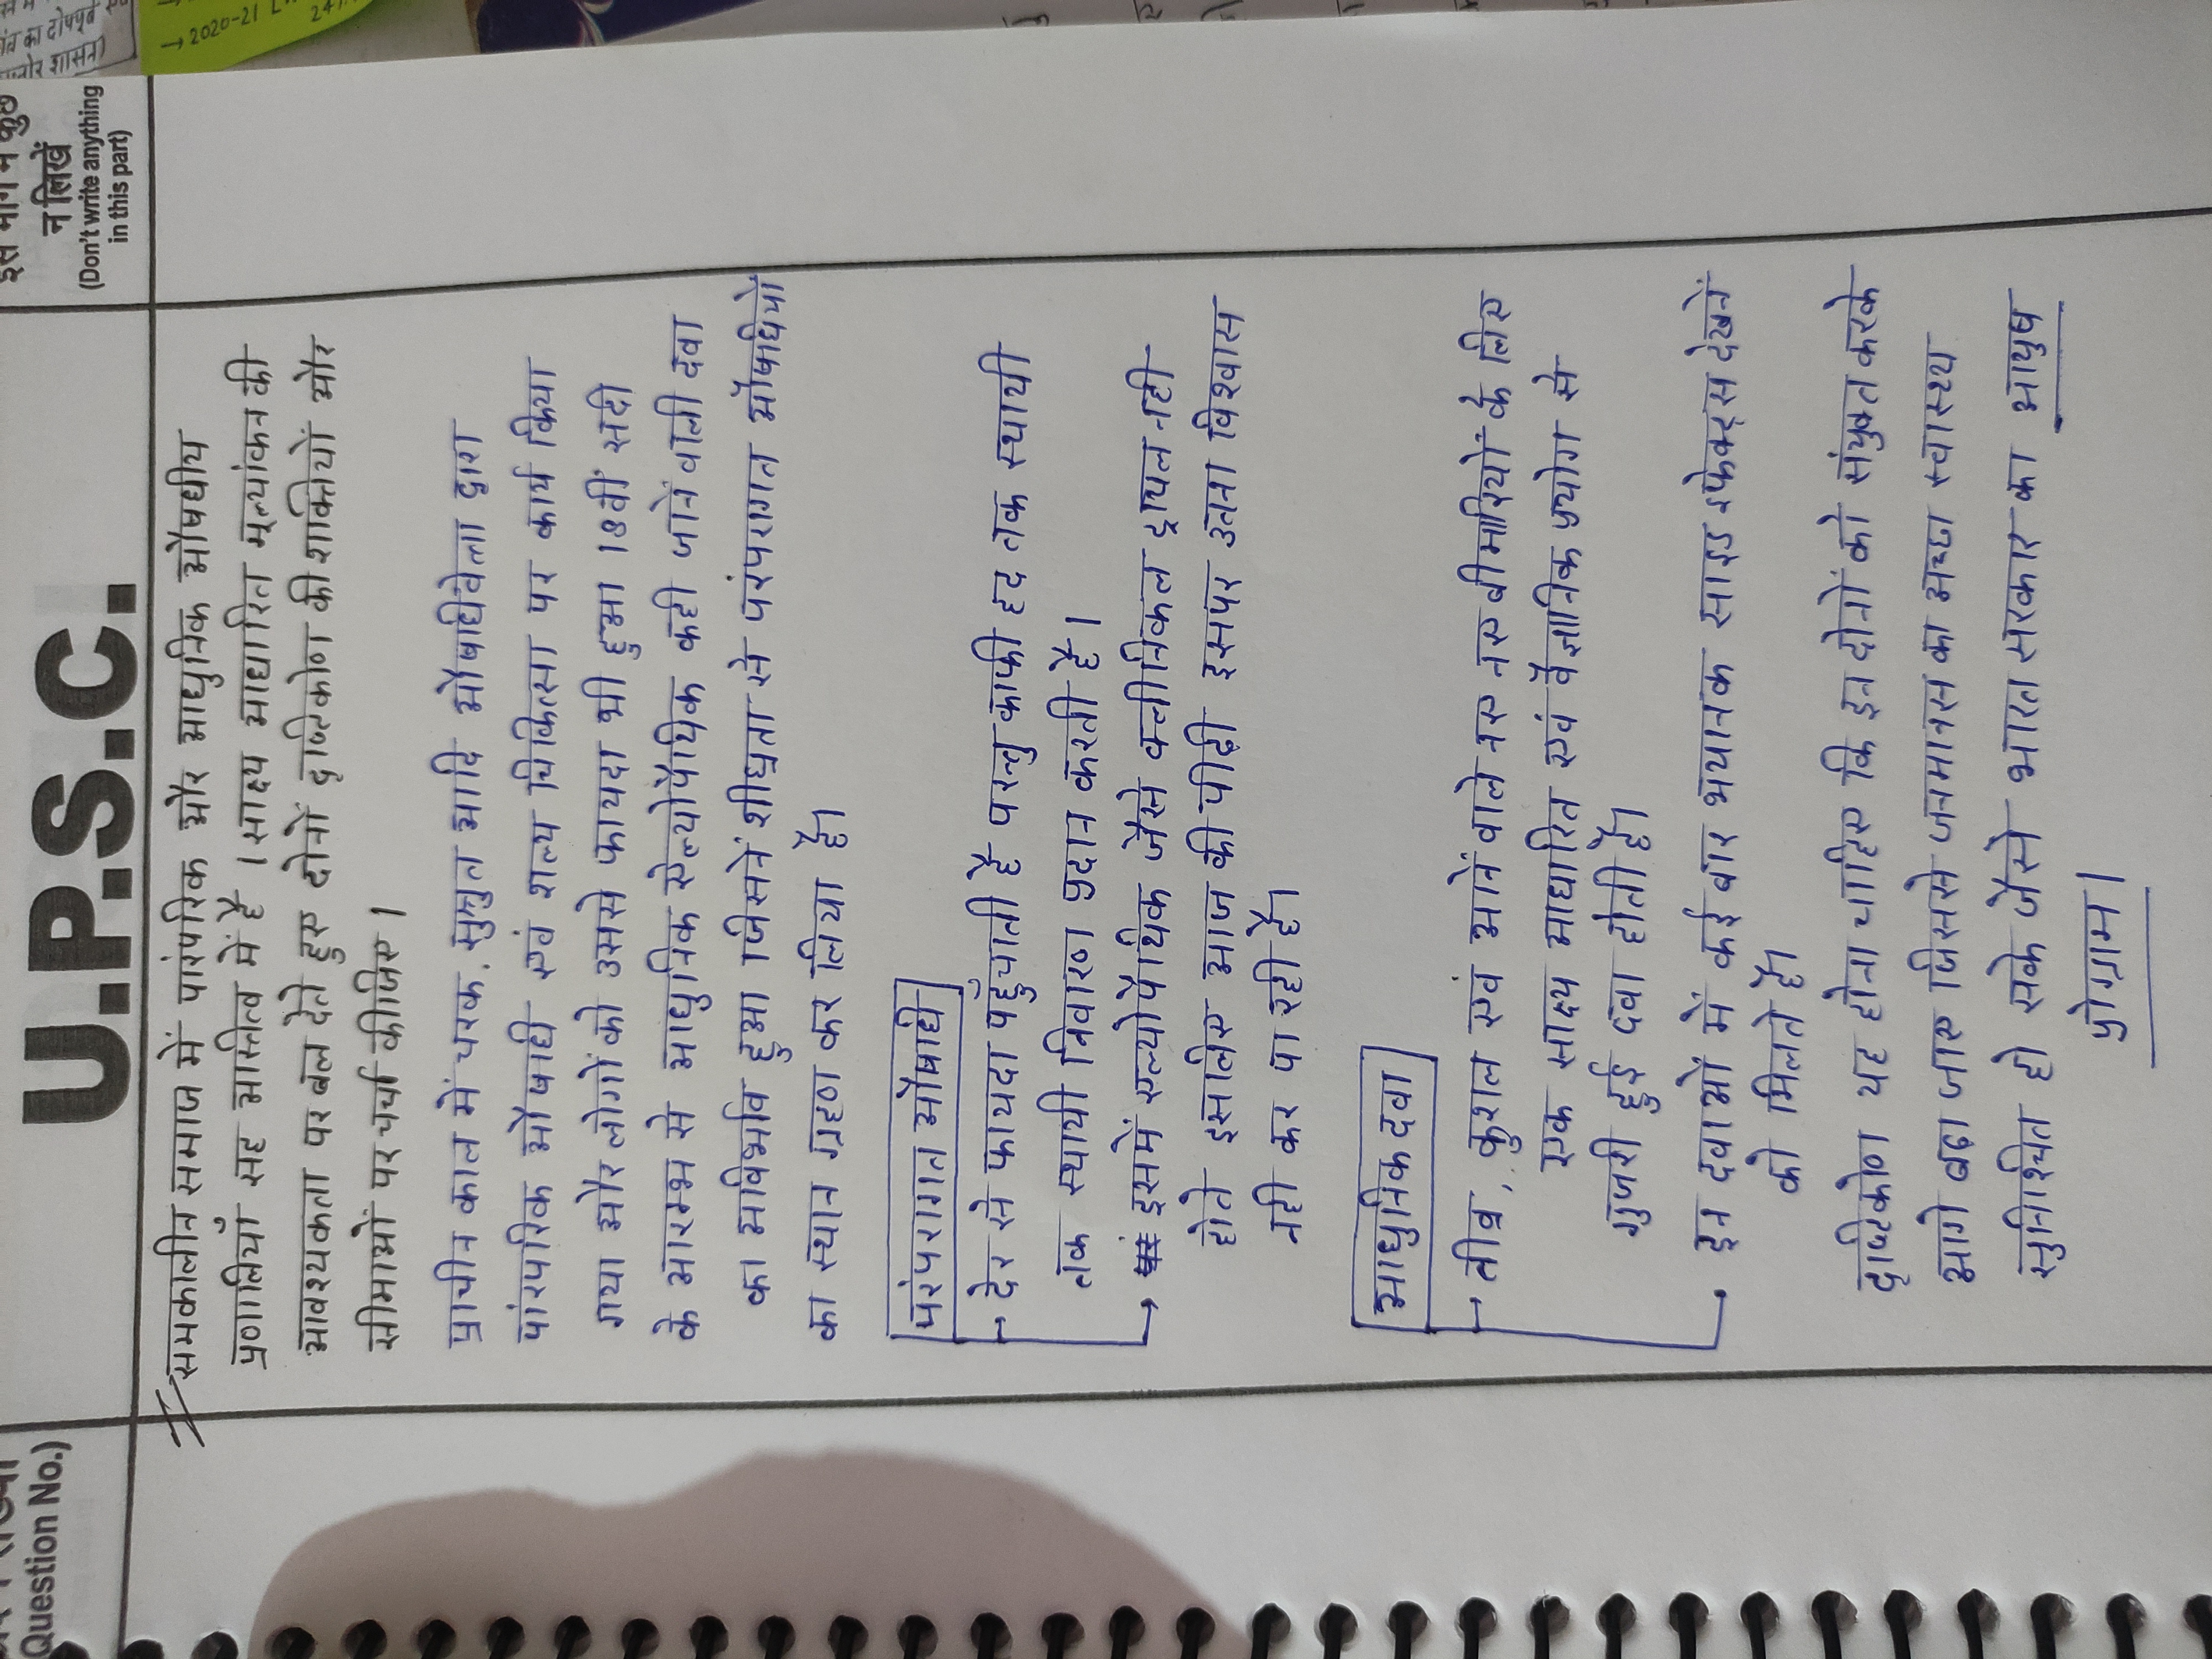 → 2020-21
का दोषपूर्ण
शासन)
इस भाग में कुछ
न लिखें
(Don't write anything
in this part)
U.P.S.C.
Question No.)
समकालीन समाज में पारंपरिक और आधुनिक औषधीय
प्रणालियाँ सह आस्तित्व में है । साक्ष्य आधारित मूल्यांकन की
आवश्यकता पर बल देते हुए दोनों दृष्टिकोण की शक्तियों और
सीमाओं पर चर्चा कीजिए ।
प्राचीन काल में चरक, सुश्रुत आदि औषधिवेत्ता द्वारा
पांरपरिक औषधि एवं शल्य चिकित्सा पर कार्य किया
गया और लोगों को उससे फायदा भी हुआ 18वीं सदी
के आरम्भ से आधुनिक ऐल्योपैथिक कही जाने वाली दवा
का आविर्भाव हुआ जिसनें शीघ्रता से परंपरागत औषधियों
का स्थान ग्रहण कर लिया है।
परंपरागत औषधि
→ देर से फायदा पहुँचाती है परन्तु काफी हद तक स्थायी
तक स्थायी निवारण प्रदान करती है।
→ इसमें एल्योपैथिक जैसे क्लीनिकल ट्रायल नही
होते इसलिए आज की पीढ़ी इसपर उतना विश्वास
नही कर पा रही है।
आधुनिक दवा
→ तीव्र, कुशल एवं आनें वाले नए नए बीमारियों के लिए
एक साक्ष्य आधारित एवं वैज्ञानिक प्रयोग से
गुजरी हुई दवा होती है।
→ इन दवाओं में कई बार भयानक साइड इफेक्ट्स देखनें
को मिलते है।
दृष्टिकोण यह होना चाहिए कि इन दोनों को संयुक्त करके
आगे बढ़ा जाए जिससे जनमानस का अच्छा स्वास्थ्य
सुनिश्चित हो सके जैसे भारत सरकार का आयुष
प्रोग्राम।